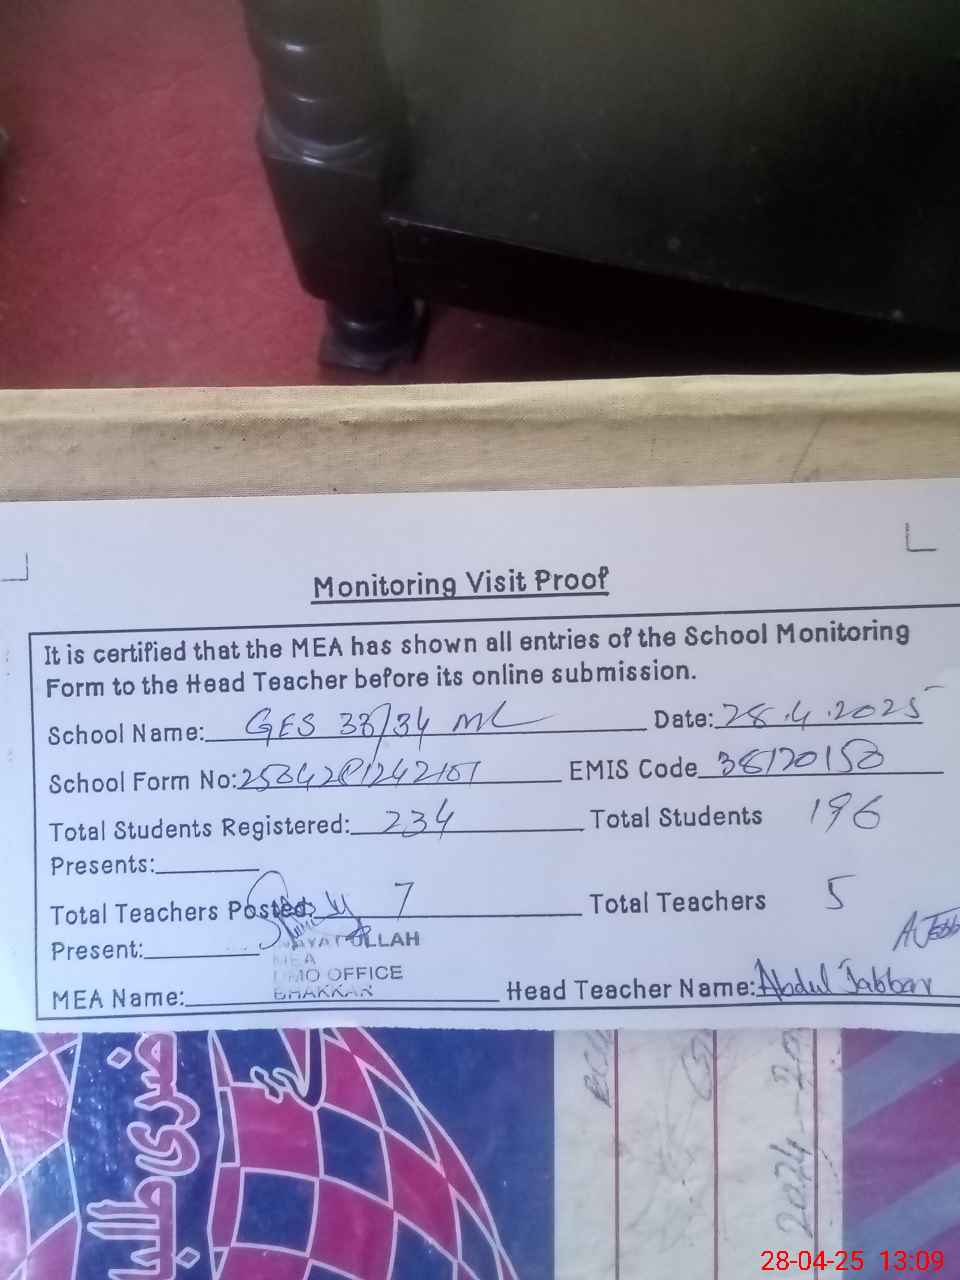 Monitoring Visit Proof
It is certified that the MEA has shown all entries of the School Monitoring
Form to the Head Teacher before its online submission.
School Name: GES 38/34 ML Date: 28.4.2025
School Form No: EMIS Code 38120158
Total Students Registered: 234 Total Students 196
Presents:
Total Teachers Posted: 7 Total Teachers 5
Present:
INAYAT ULLAH
MEA
DMO OFFICE
BHAKKAR
MEA Name: Head Teacher Name: Abdul Jabbar
2024
28-04-25 13:09